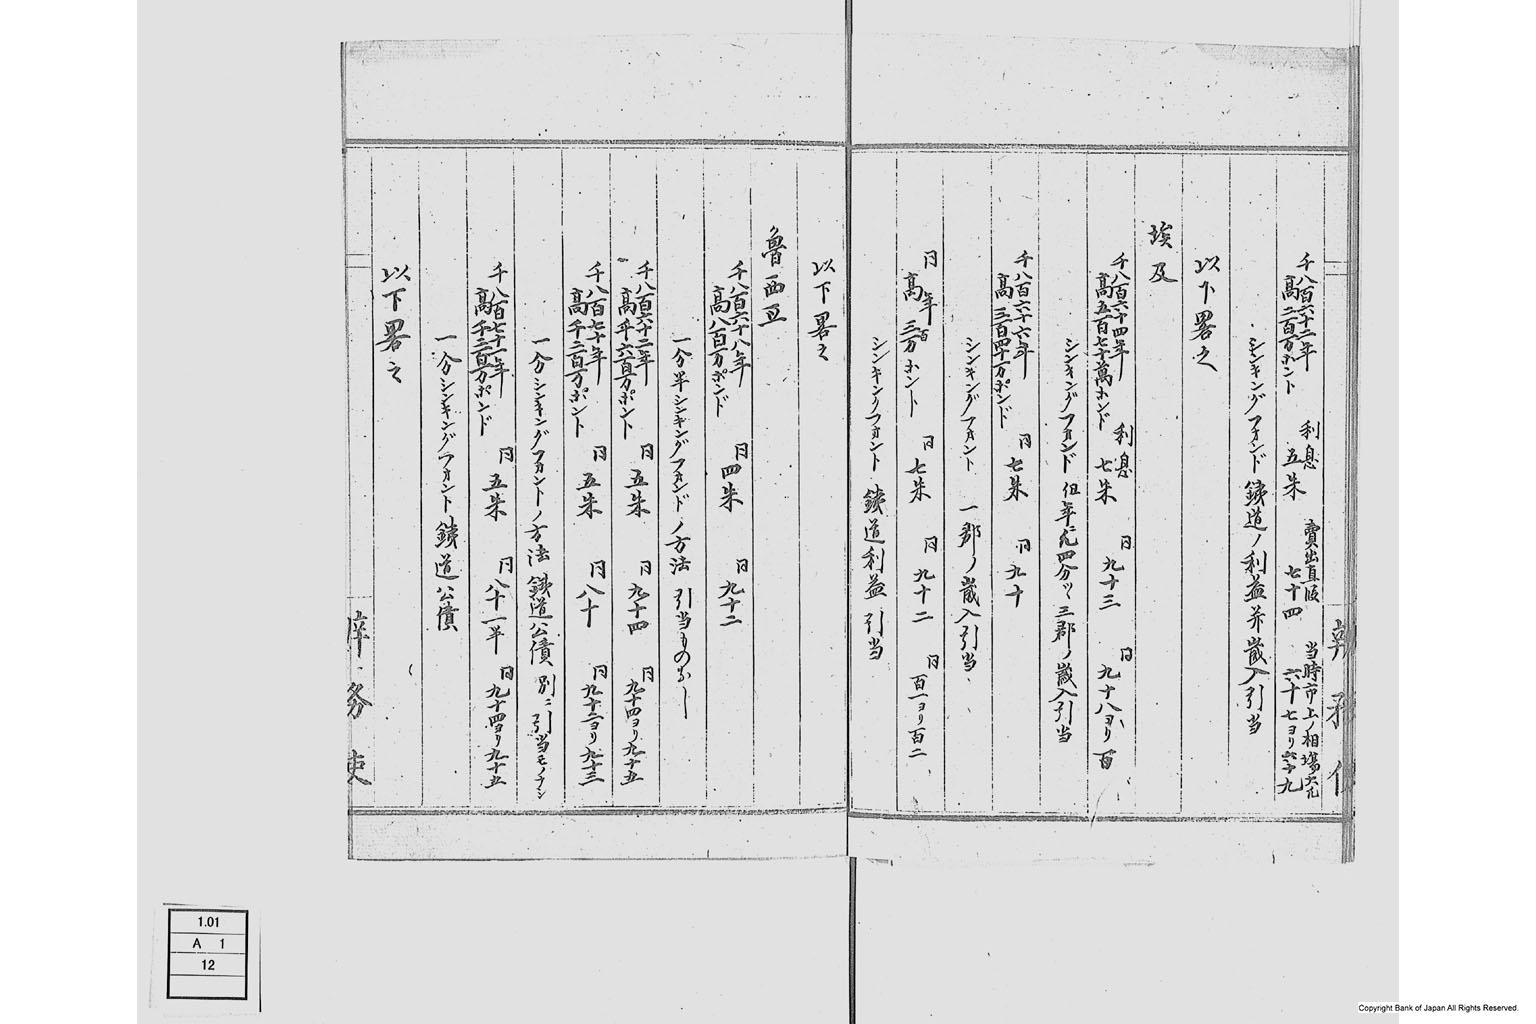 千八百六十二年
高二百万ホント 利息五朱 賣出直段七十四 当時市上ノ相場大凡六十七ヨリ六十九
シンキングフォンド 鉄道ノ利益并歳入引当
以下畧之
埃及
千八百六十四年
高五百七十萬ホンド 利息七朱 同九十三 同九十八ヨリ百
シンキングフォンド 但年ニ凡四分ツヽ 三郡ノ歳入引当
千八百六十六年
高三百四十万ポンド 同七朱 同九十
シンキングフォント 一郡ノ歳入引当
同年
高三百万ホント 同七朱 同九十二 同百一ヨリ百二
シンキングフォント 鉄道利益引当
以下畧之
魯西亞
千八百六十八年
高八百万ポンド 同四朱 同九十二
一分半シンキングフォンドノ方法 引当ものなし
千八百六十二年
高千六百万ポント 同五朱 同九十四 同九十四ヨリ九十五
千八百七十年
高千二百万ポント 同五朱 同八十 同九十二ヨリ九十三
一分シンキングフォントノ方法 鉄道公債 別ニ引当モノナシ
千八百七十一年
高千二百万ポンド 同五朱 同八十一半 同九十四ヨリ九十五
一分シンキングフォント 鉄道公債
以下畧之
務使
1.01
A 1
12
Copyright Bank of Japan All Rights Reserved.